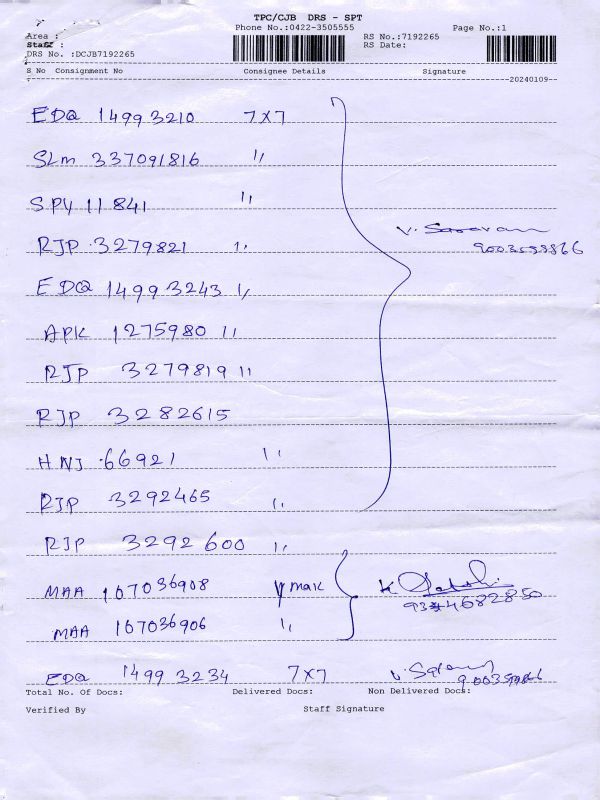 TPC/CJB DRS - SPT
Phone No.:0422-3505555
Page No.:1
Area :
RS No.:7192265
Staff :
RS Date:
DRS No. :DCJB7192265
S No Consignment No Consignee Details Signature
20240109
EDQ 14993210 7x7
SLM 337091816 ,,
SPY 11841 ,,
RJP 3279821 ,,
V. Saravan
EDQ 14993243 ,,
APK 1275980 ,,
RJP 3279819 ,,
RJP 3282615
HNJ 66921 ,,
RJP 3292465 ,,
RJP 3292600 ,,
MAA 107036908 Vmak
MAA 107036906 ,,
EDQ 14993234 7x7
Total No. Of Docs: Delivered Docs: Non Delivered Docs:
Verified By Staff Signature